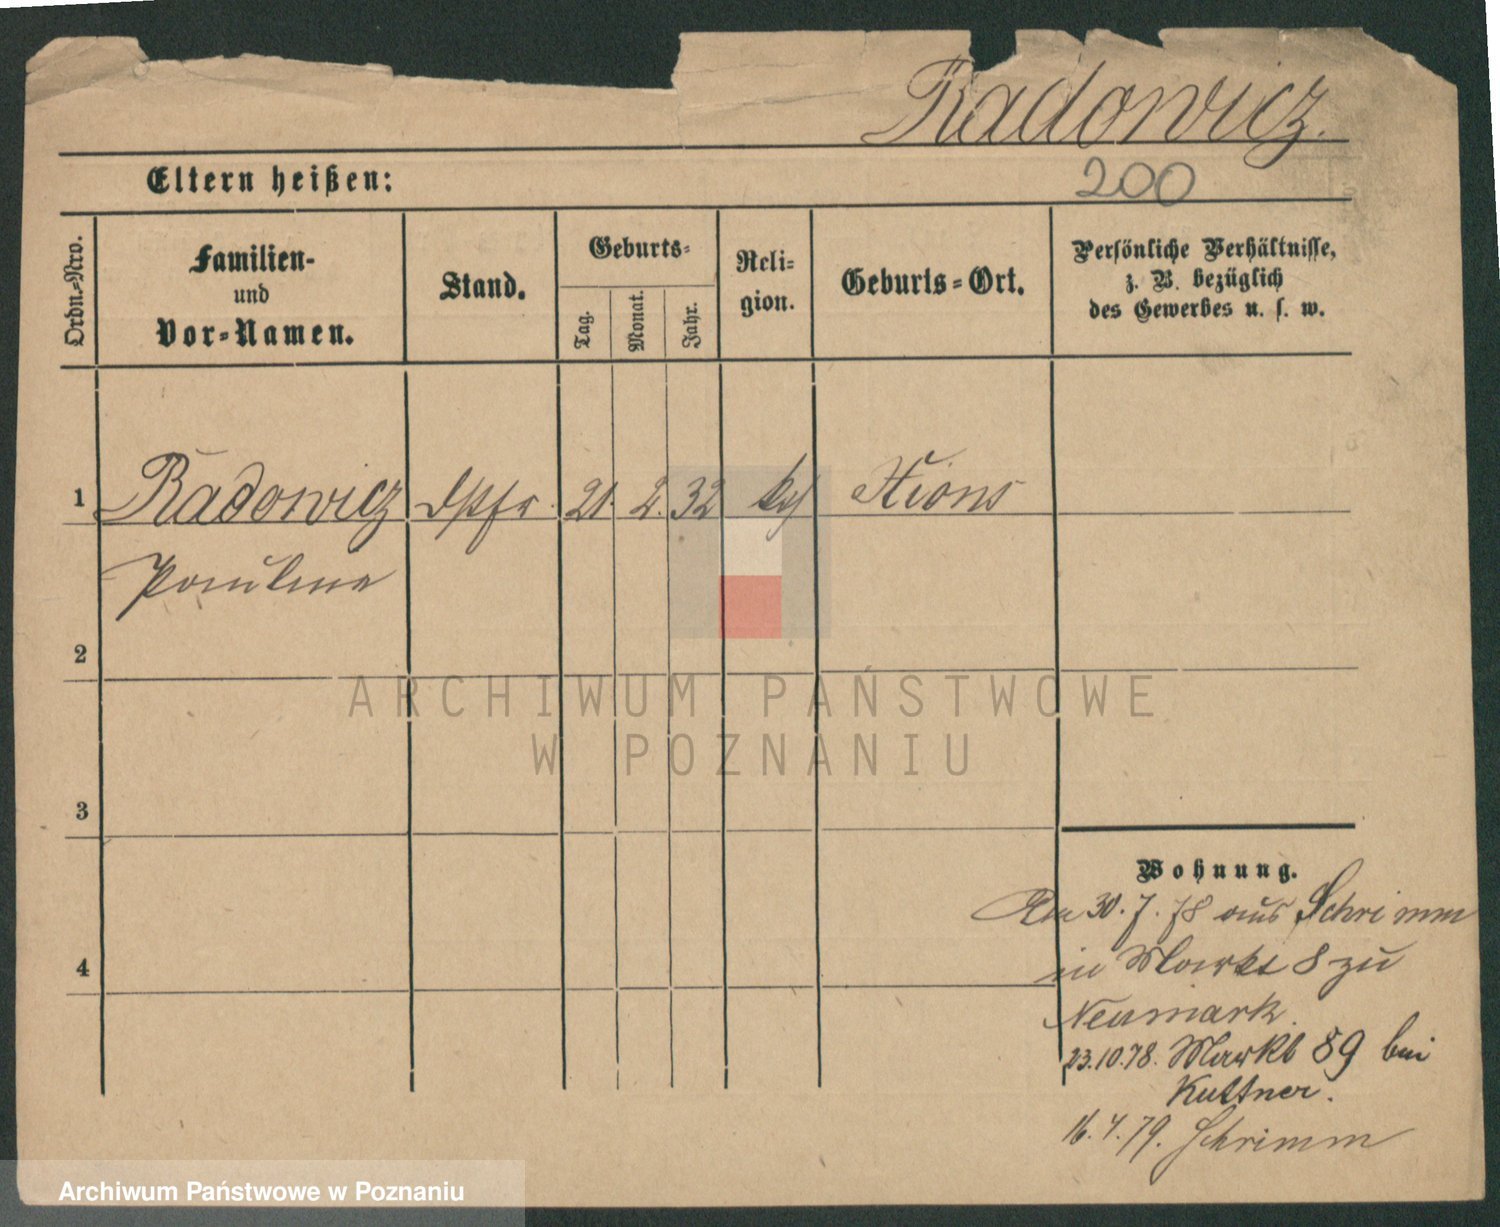 Radowicz.
Eltern heißen:
200
Ordn.-Nro.
Familien-
und
Vor-Namen.
Stand.
Geburts-
Tag.
Monat.
Jahr.
Reli-
gion.
Geburts-Ort.
Persönliche Verhältnisse,
z. B. bezüglich
des Gewerbes u. s. w.
1 Radowicz 21. 2. 32 Xions
Pauline
2
ARCHIWUM PAŃSTWOWE
W POZNANIU
3
Wohnung.
Am 30. 7. 78 aus Schrimm
in Markt 8 zu
Neumark.
4
23.10.78. Markt 89 bei
Kuttner.
16. 4. 79. Schrimm
Archiwum Państwowe w Poznaniu